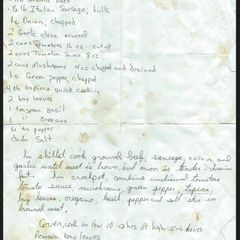 Ground Beef
1 lb Italian Sausage, bulk
1 c Onion, chopped
2 Garlic clove minced
2 cans Tomatoes 16 oz. cut up
2 cans Tomato Sauce 8oz
2 cans Mushrooms 4oz chopped and drained
1 c Green pepper, chopped
4 tb tapioca quick cooking
2 bay leaves
1 teaspoon Basil
1 " Oregano
¼ ts pepper
dash Salt
In skillet cook ground beef, sausage, onion, and
garlic until meat is brown, and onion is tender - drain
fat. In crockpot, combine undrained tomatoes
tomato sauce, mushrooms, green pepper, tapioca,
bay leaves, oregano, basil, pepper and salt stir in
browned meat.
Cover, cook on low 10-12 hrs or high 5-6 hours
Remove bay leaves